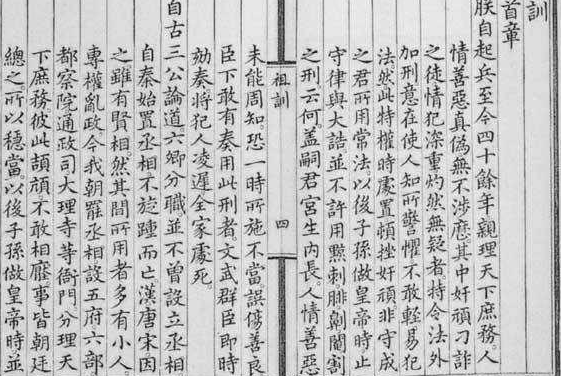 訓
首章
朕自起兵至今四十餘年親理天下庶務人
情善惡真偽無不涉歷其中奸頑刁詐
之徒情犯深重灼然無疑者特令法外
加刑意在使人知所警懼不敢輕易犯
法然此特權時處置頓挫奸頑非守成
之君所用常法以後子孫做皇帝時止
守律與大誥並不許用黥刺腓劓閹割
之刑云何蓋嗣君宮生內長人情善惡
祖訓
四
未能周知恐一時所施不當誤傷善良
臣下敢有奏用此刑者文武群臣即時
劾奏將犯人凌遲全家處死
自古三公論道六卿分職並不曾設立丞相
自秦始置丞相不旋踵而亡漢唐宋因
之雖有賢相然其間所用者多有小人
專權亂政今我朝罷丞相設五府六部
都察院通政司大理寺等衙門分理天
下庶務彼此頡頏不敢相壓事皆朝廷
總之所以穩當以後子孫做皇帝時並